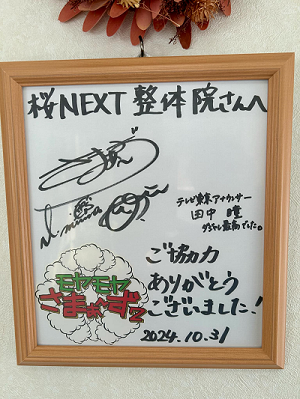 桜NEXT 整体院さんへ
テレビ東京アナウンサー
田中 瞳
モヤモヤ
さまぁ~ず2
ご協力
ありがとう
ございました!
2024.10.31